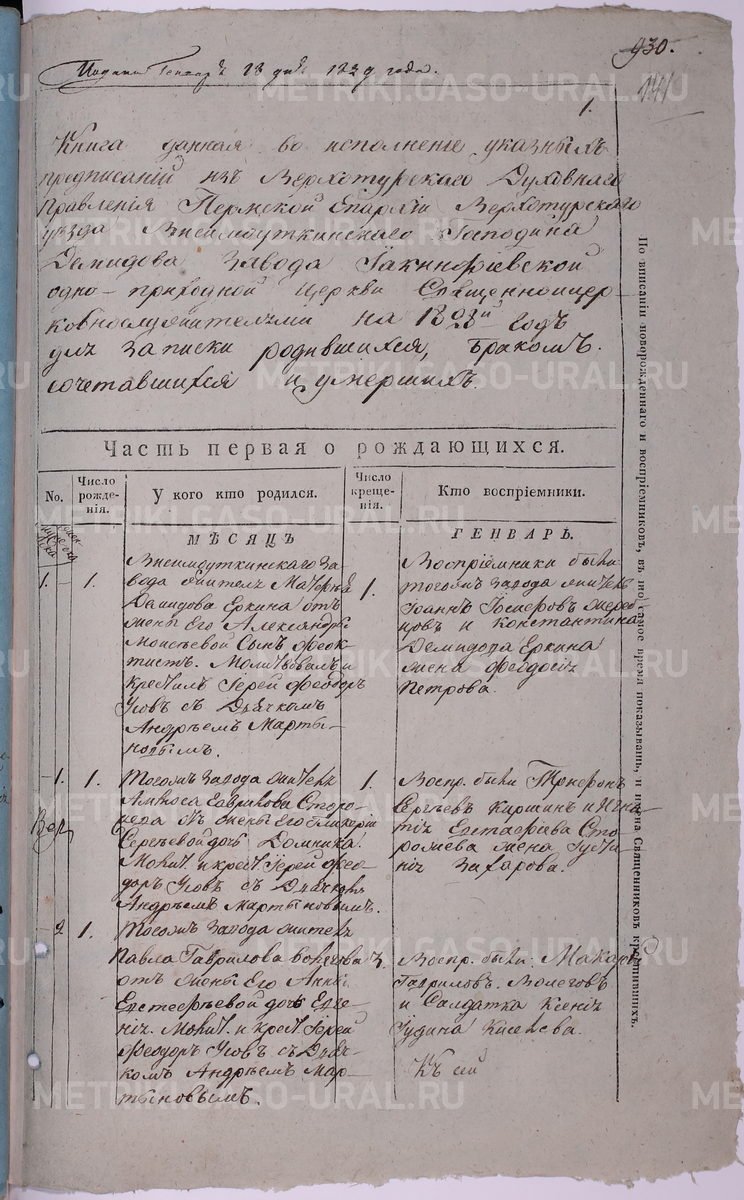 Генваря 28 дня 1829 года.
930.
141
1.
Книга данная во исполненіе указныхъ
предписаній изъ Верхотурскаго Духовнаго
Правленія Пермской Епархіи Верхотурскаго
уѣзда Висимоуткинскаго Господина
Демидова Завода Іакинфіевской
одно-приходной Церкви Священноцер-
ковнослужителями на 1828й годъ
для записки родившихся, бракомъ
сочетавшихся и умершихъ.
Часть первая о рождающихся.
No. Число рожде-нія. У кого кто родился. Число креще-нія. Кто воспріемники.
МѢСЯЦЪ ГЕНВАРЬ.
Висимоуткинскаго За-
1. 1. вода жителя
Демидова Еркина отъ
жены его Александры
Моисѣевой Сынъ Феок-
тистъ. Молитвовалъ и
крестилъ Іерей Феодоръ
Усовъ съ Дьячкомъ
Андрѣемъ Марты-
новымъ.
1. Воспріемники были
тогожъ завода житель
Іоаннъ
и Константина
Демидова Еркина
жена Феодосія
Петрова.
1. 1. Тогожъ Завода жителя
отъ жены его Гликеріи
Сергѣевой дочь Домника.
Молит. и крест. Іерей Фео-
доръ Усовъ съ Дьячкомъ
Андрѣемъ Мартыновымъ.
1. Воспр. были Трифонъ
Сергѣевъ Каршинъ и
Евстафіева
жена
Захарова.
2 1. Тогожъ Завода жителя
Павла Гаврилова
отъ жены его Анны
дочь Евге-
нія. Молит. и крест. Іерей
Феодоръ Усовъ съ Дьяч-
комъ Андрѣемъ Мар-
тыновымъ.
3. Воспр. были: Макаръ
Гавриловъ
и Солдатка Ксенія
Іудина Киселева.
Къ сей
По вписаніи новорожденнаго и воспріемниковъ, въ то самое время показывать, и имена Священниковъ крестившихъ.
METRIKI.GASO-URAL.RU